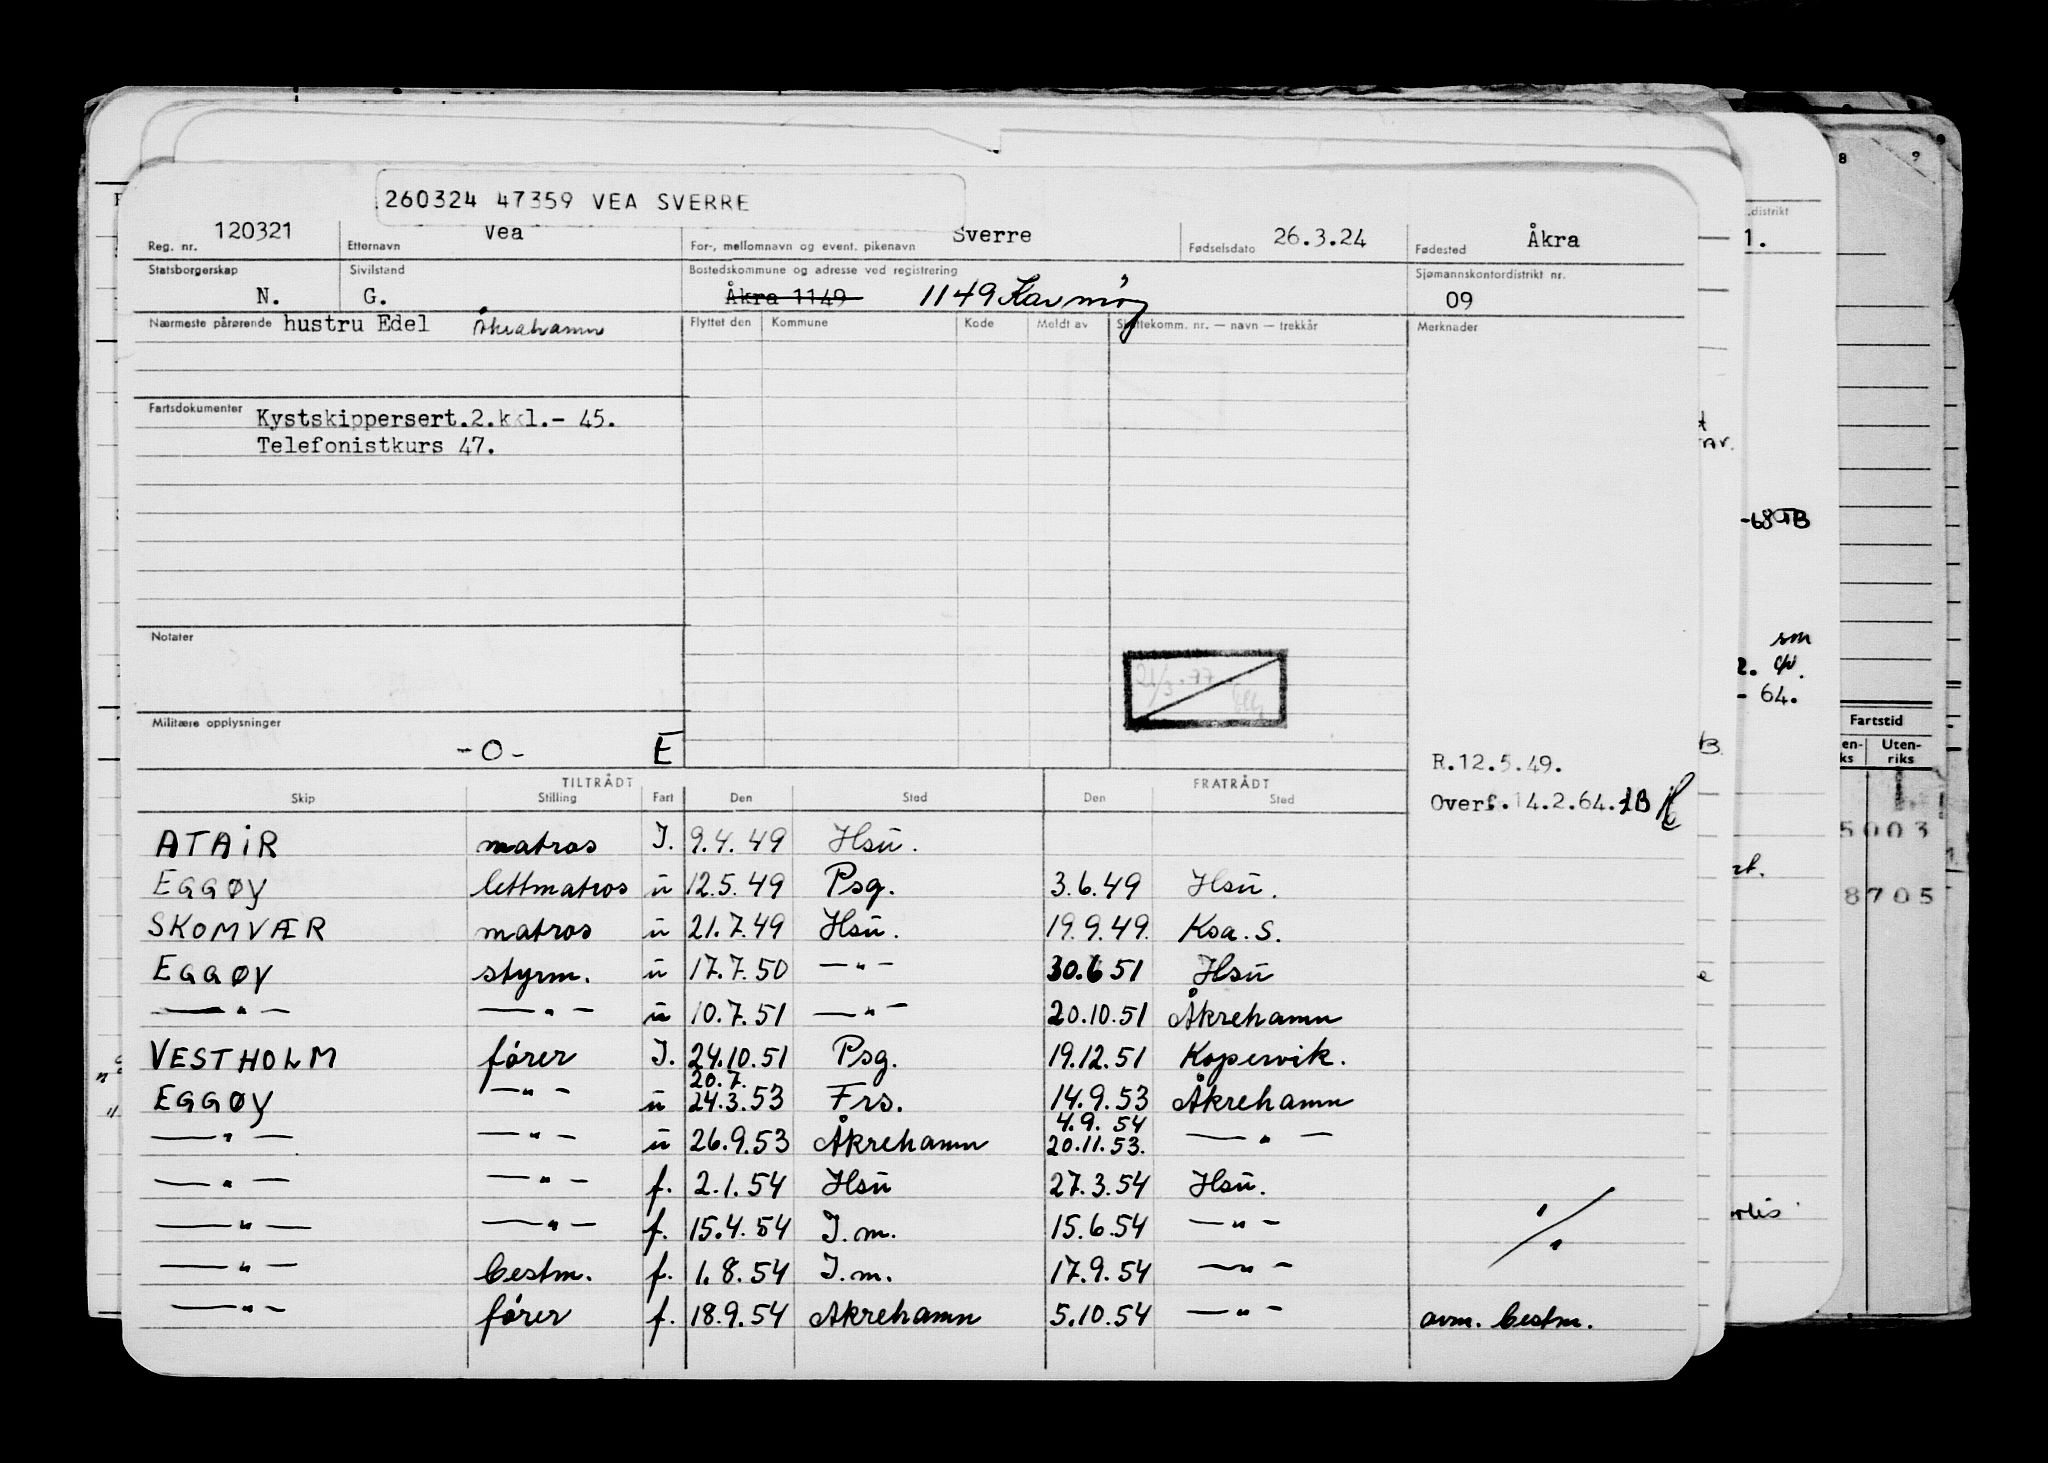 260324 47359 VEA SVERRE
Reg. nr. 120321 Etternavn Vea For-, mellomnavn og event. pikenavn Sverre Fødselsdato 26.3.24 Fødested Åkra
Statsborgerskap N. Sivilstand G. Bostedskommune og adresse ved registrering Åkra 1149 1149 Karmøy Sjømannskontordistrikt nr. 09
Nærmeste pårørende hustru Edel Åkrahamn Flyttet den Kommune Kode Meldt av Skattekomm. nr. — navn — trekkår Merknader
Fartsdokumenter Kystskippersert.2.kkl.- 45.
Telefonistkurs 47.
Notater
21/3.77
Militære opplysninger
-0- E
R.12.5.49.
Overf.14.2.64.
TILTRÅDT FRATRÅDT
Skip Stilling Fart Den Sted Den Sted
ATAIR matros I. 9.4.49 Hsu.
EGGØY lettmatros u 12.5.49 Psg. 3.6.49 Hsu.
SKOMVÆR matros u 21.7.49 Hsu. 19.9.49 Ksa.S.
EGGØY styrm. u 17.7.50 —"— 30.6 51 Hsu
—"— —"— u 10.7.51 —"— 20.10.51 Åkrehamn
VESTHOLM fører I. 24.10.51 Psg. 19.12.51 Kopervik.
20.7.
EGGØY —"— u 24.3.53 Frs. 14.9.53 Åkrehamn
4.9.54
—"— —"— u 26.9.53 Åkrehamn 20.11.53. —"—
—"— —"— f. 2.1.54 Hsu 27.3.54 Hsu.
—"— —"— f. 15.4.54 I.m. 15.6.54 —"—
—"— bestm. f. 1.8.54 I.m. 17.9.54 —"—
—"— fører f. 18.9.54 Åkrehamn 5.10.54 —"— avm. bestm.
8 9
distrikt
1.
sm
- 64.
Fartstid
Uten-
riks
5003
8705